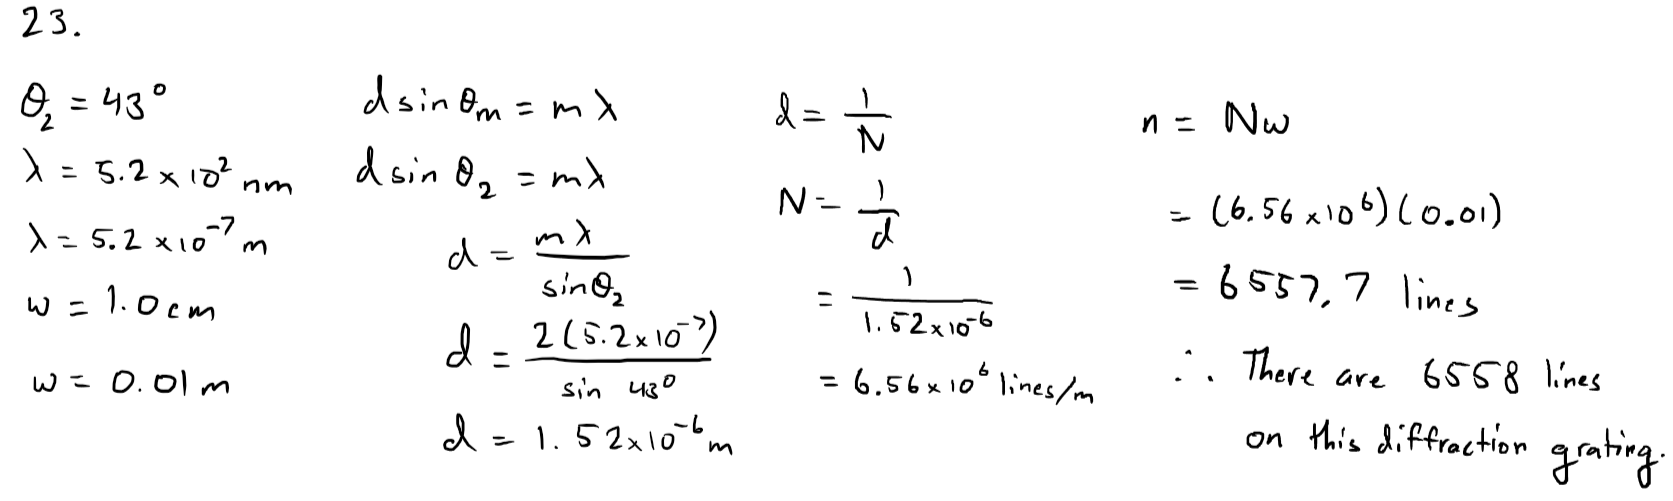 23.
θ₂ = 43°
λ = 5.2 × 10² nm
λ = 5.2 × 10⁻⁷ m
w = 1.0 cm
w = 0.01 m
d sin θm = mλ
d sin θ₂ = mλ
d = mλ / sin θ₂
d = 2(5.2 × 10⁻⁷) / sin 43°
d = 1.52 × 10⁻⁶ m
d = 1 / N
N = 1 / d
= 1 / 1.52 × 10⁻⁶
= 6.56 × 10⁶ lines/m
n = Nw
= (6.56 × 10⁶)(0.01)
= 6557.7 lines
∴ There are 6558 lines
on this diffraction grating.